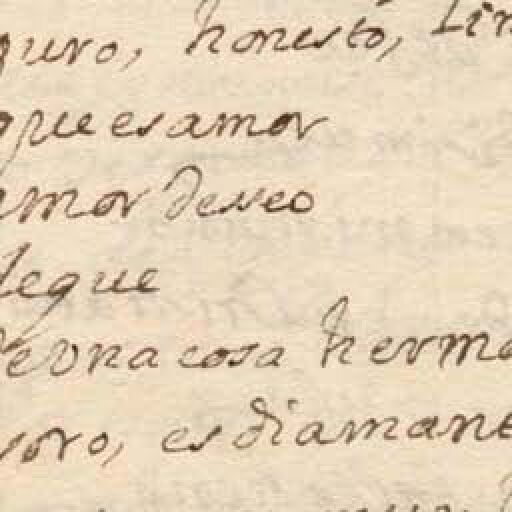 puro, honesto, Lin
que es amor
amor deseo
de que
de vna cosa hermo
soro, es diamant